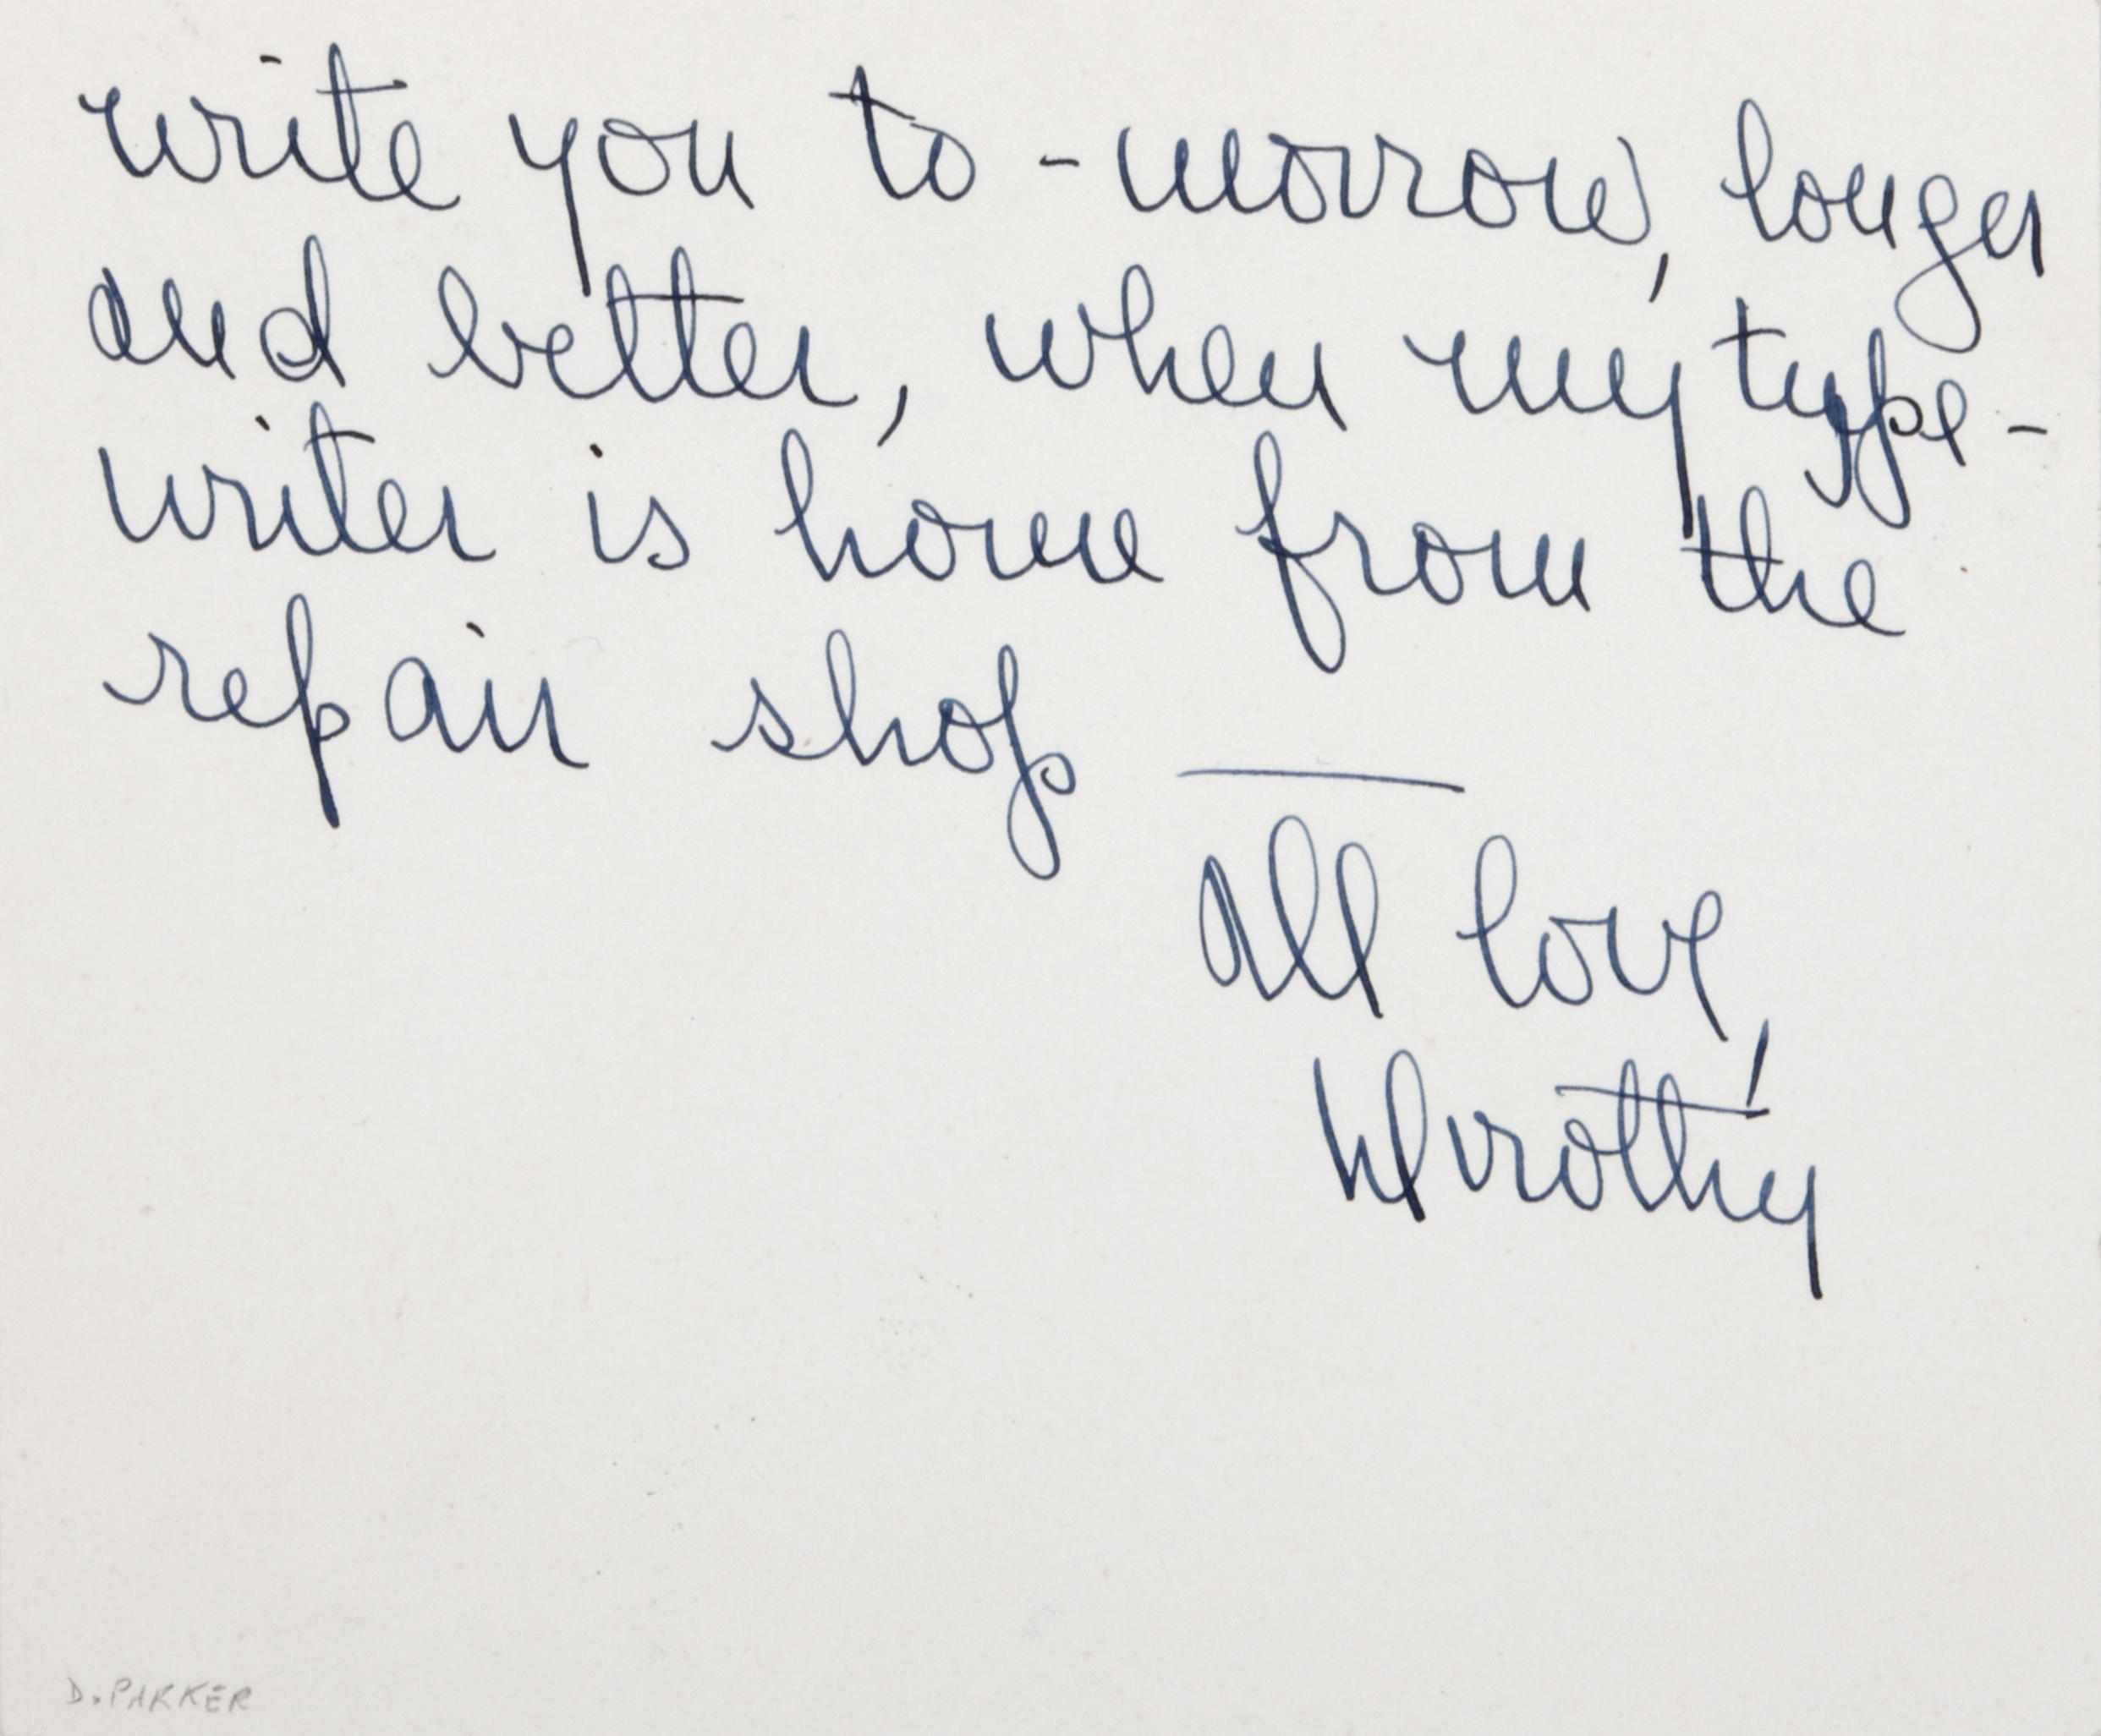 write you to-morrow, longer
and better, when my type-
writer is home from the
repair shop —
All love,
Dorothy
D. PARKER